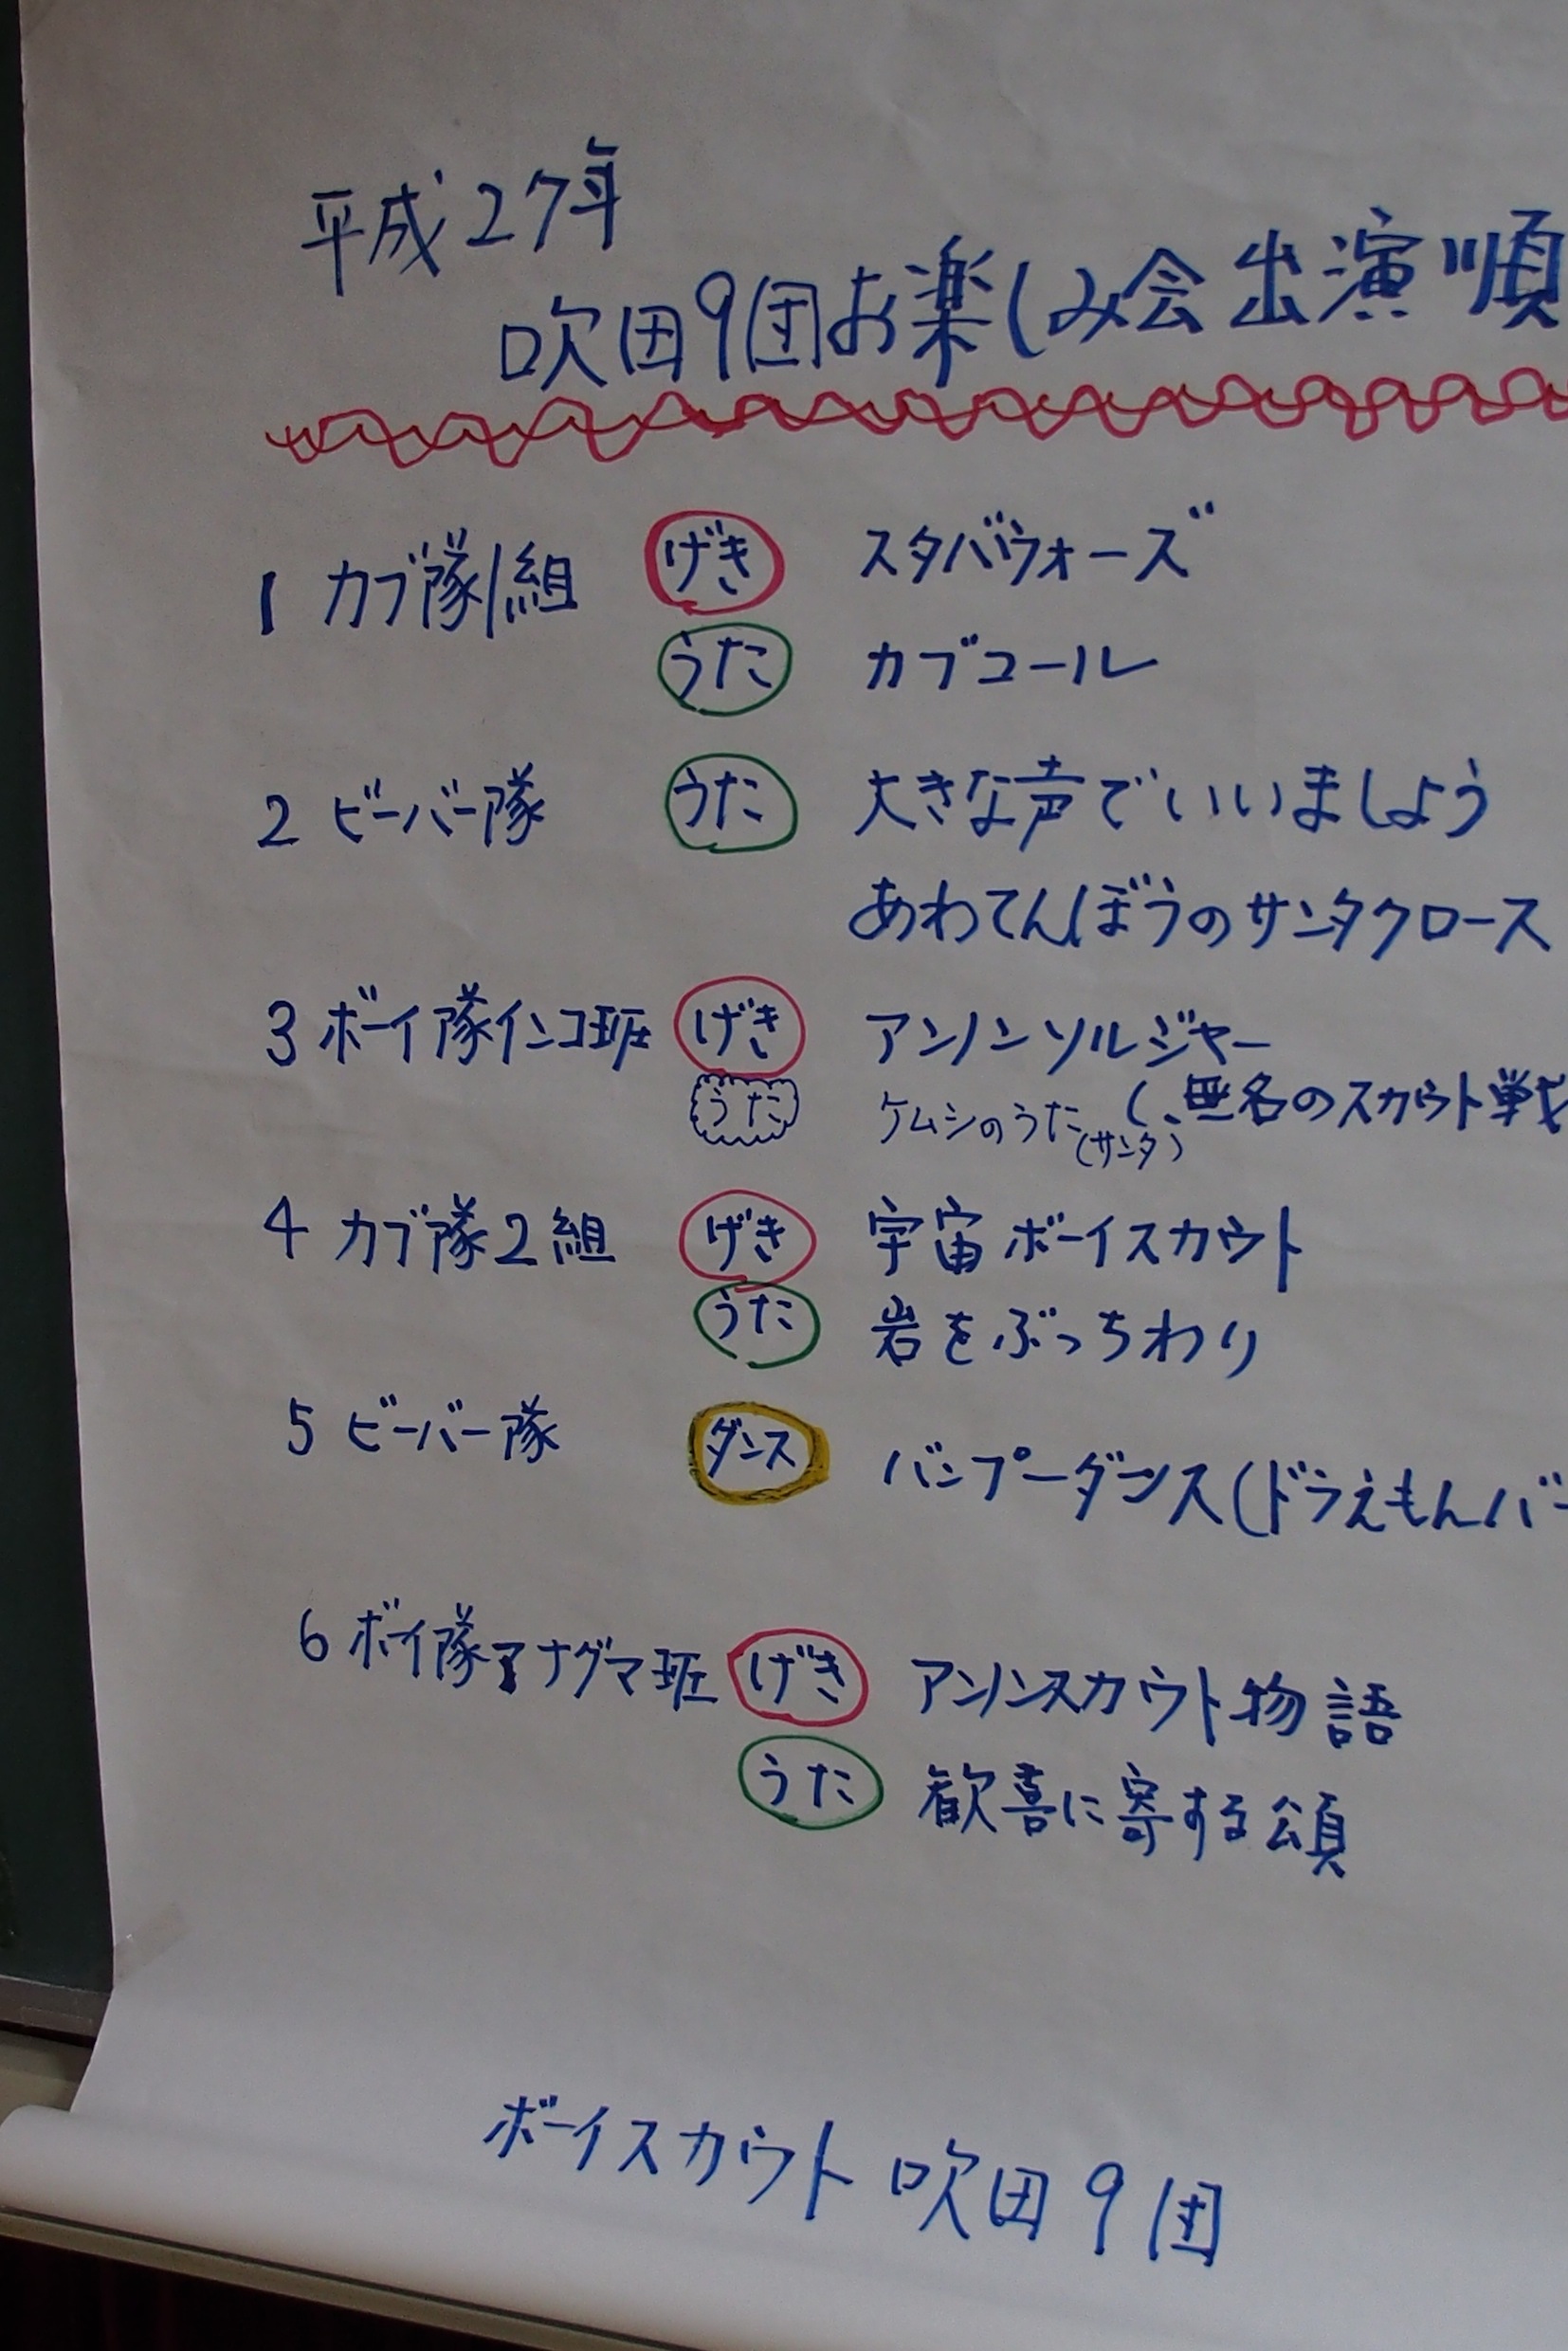 平成27年
吹田9団お楽しみ会出演順
1 カブ隊1組 げき スタバウォーズ
うた カブコール
2 ビーバー隊 うた 大きな声でいいましょう
あわてんぼうのサンタクロース
3 ボーイ隊インコ班 げき アンノンソルジャー
(、無名のスカウト戦
うた ケムシのうた(サンタ)
4 カブ隊2組 げき 宇宙ボーイスカウト
うた 岩をぶっちわり
5 ビーバー隊 ダンス バンプーダンス(ドラえもんバー
6 ボーイ隊アナグマ班 げき アンノンスカウト物語
うた 歓喜に寄する頌
ボーイスカウト 吹田9団